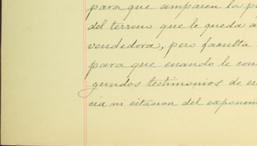 para que amparen la p
del terreno que le queda a
vendedora, pero faculta
para que cuando le con
gundos testimonios de es
del exponen